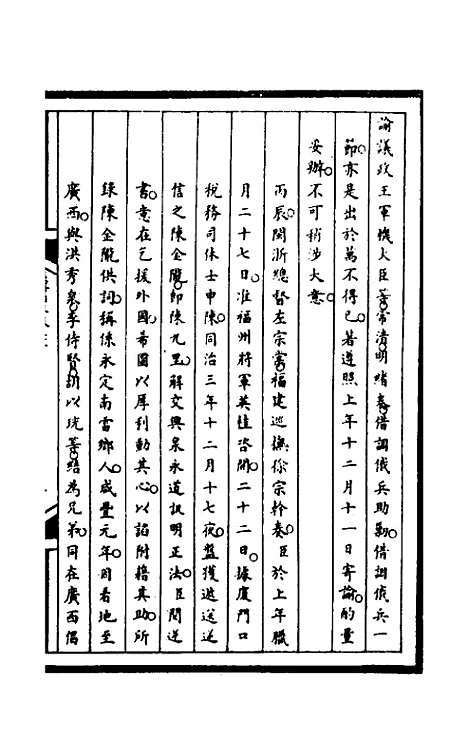 諭議政王軍機大臣等常清明緒奏借調俄兵助勦借調俄兵一
節亦是出於萬不得已著遵照上年十二月十一日寄諭酌量
妥辦不可稍涉大意
丙辰閩浙總督左宗棠福建巡撫徐宗幹奏臣於上年臘
月二十七日准福州將軍英桂咨開二十二日據廈門口
稅務司休士申陳同治三年十二月十七夜盤獲遞送逆
信之陳金隴即陳九里解交興泉永道訊明正法臣閱逆
書意在乞援外國希圖以厚利動其心以諂附藉其助所
錄陳金隴供詞稱係永定南雷鄉人咸豐元年因看地至
廣西與洪秀泉李侍賢訓以珖等結為兄弟同在廣西倡